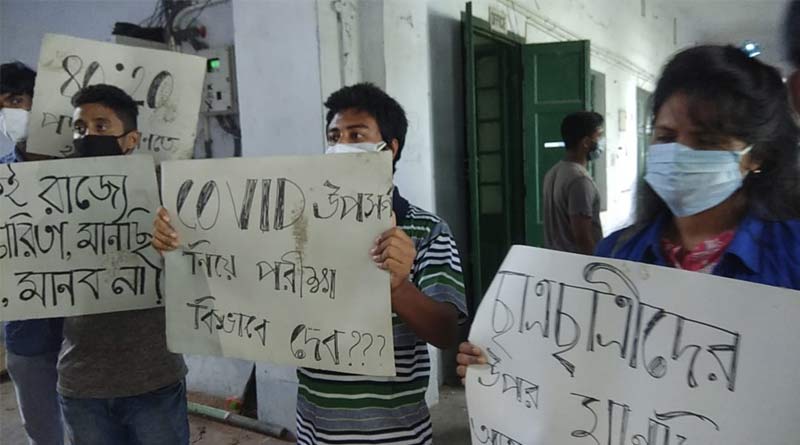 ৪০:২০
ই রাজ্যে
চারিতা, মানছি
, মানব না!
COVID উপসর্গ
নিয়ে পরীক্ষা
কিভাবে দেব???
ছাত্রছাত্রীদের
উপর মানসি